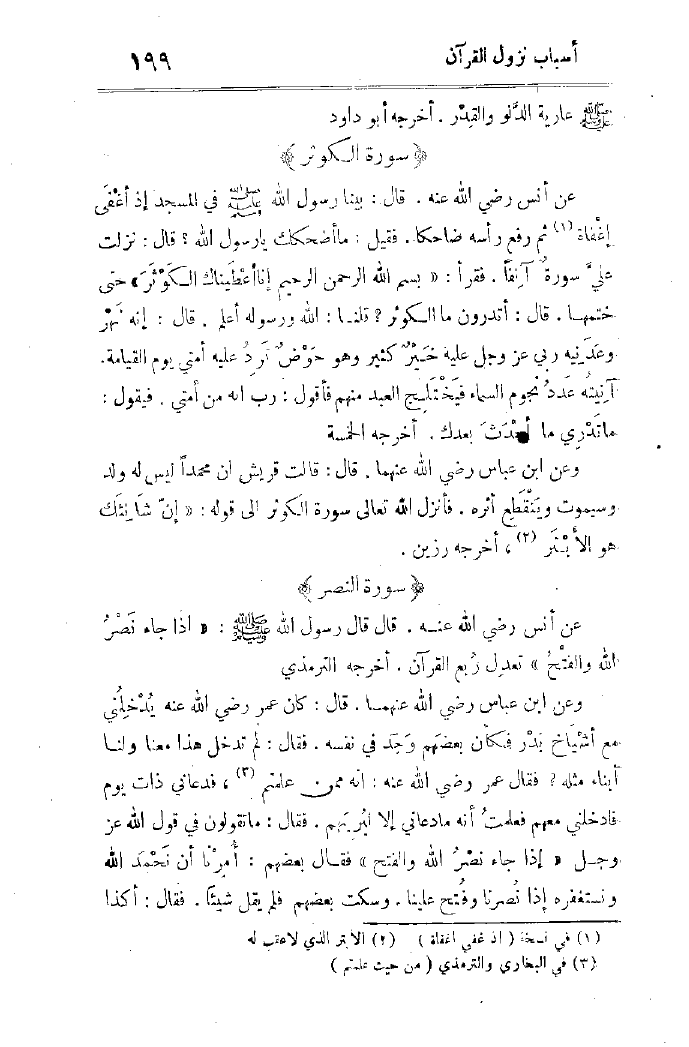 أسباب نزول القرآن ١٩٩
ﷺ عارية الدَّلو والقِدْر . أخرجه أبو داود
﴿ سورة الكوثر ﴾
عن أنس رضي الله عنه . قال : بينا رسول الله ﷺ في المسجد إذ أغْفَى
إغْفاة (١) ثم رفع رأسه ضاحكا . فقيل : ماأضحكك يارسول الله ؟ قال : نزلت
عليَّ سورةٌ آنِفاً . فقرأ : « بسم الله الرحمن الرحيم إناأعْطيناك الكَوْثَرَ » حتى
ختمها . قال : أتدرون ما الكوثر ؟ قلنا : الله ورسوله أعلم . قال : إنه نَهْر
وعَدَنِيه ربي عز وجل عليه خَيْرٌ كثير وهو حَوْضٌ تَرِدُ عليه أمتي يوم القيامة .
آنِيتُه عَددُ نجوم السماء فيَخْتَلِج العبد منهم فأقول : رب انه من أمتي . فيقول :
ماتَدْرِي ما أحْدَثَ بعدك . أخرجه الخمسة
وعن ابن عباس رضي الله عنهما . قال : قالت قريش ان محمداً ليس له ولد
وسيموت ويَنْقَطِع أثره . فأنزل الله تعالى سورة الكوثر الى قوله : « إنّ شانِئَك
هو الأبْتَر (٢) » أخرجه رزين .
﴿ سورة النصر ﴾
عن أنس رضي الله عنه . قال قال رسول الله ﷺ : « اذا جاء نَصْرُ
الله والفَتْحُ » تعدل رُبع القرآن . أخرجه الترمذي
وعن ابن عباس رضي الله عنهما . قال : كان عمر رضي الله عنه يُدْخِلُني
مع أشْيَاخ بَدْر فكأن بعضَهم وَجَد في نفسه . فقال : لم تدخل هذا معنا ولنا
أبناء مثله ؟ فقال عمر رضي الله عنه : انه ممن علمتم (٣) ، فدعاني ذات يوم
فادخلني معهم فعلمتُ أنه مادعاني إلا ليُرِيَهم . فقال : ماتقولون في قول الله عز
وجل « إذا جاء نصْرُ الله والفتح » فقال بعضهم : أُمِرْنا أن نَحْمَد الله
ونستغفره إذا نُصرنا وفُتح علينا . وسكت بعضهم فلم يقل شيئاً . فقال : أكذا
(١) في نسخة ( اذ غفي اغفاة ) (٢) الأبتر الذي لاعقب له
(٣) في البخاري والترمذي ( من حيث علمتم )